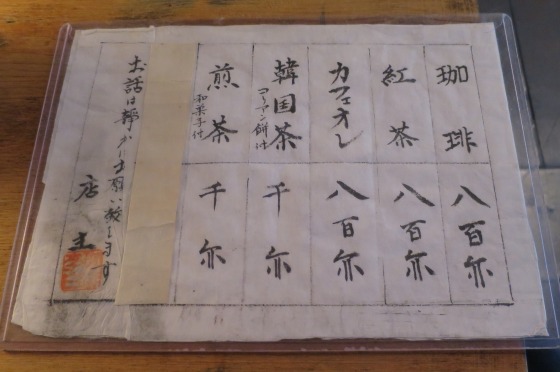 珈琲 八百円
紅茶 八百円
カフェオレ 八百円
韓国茶 千円
餅付
煎茶 千円
和菓子付
お話は静かにお願い致します
店主